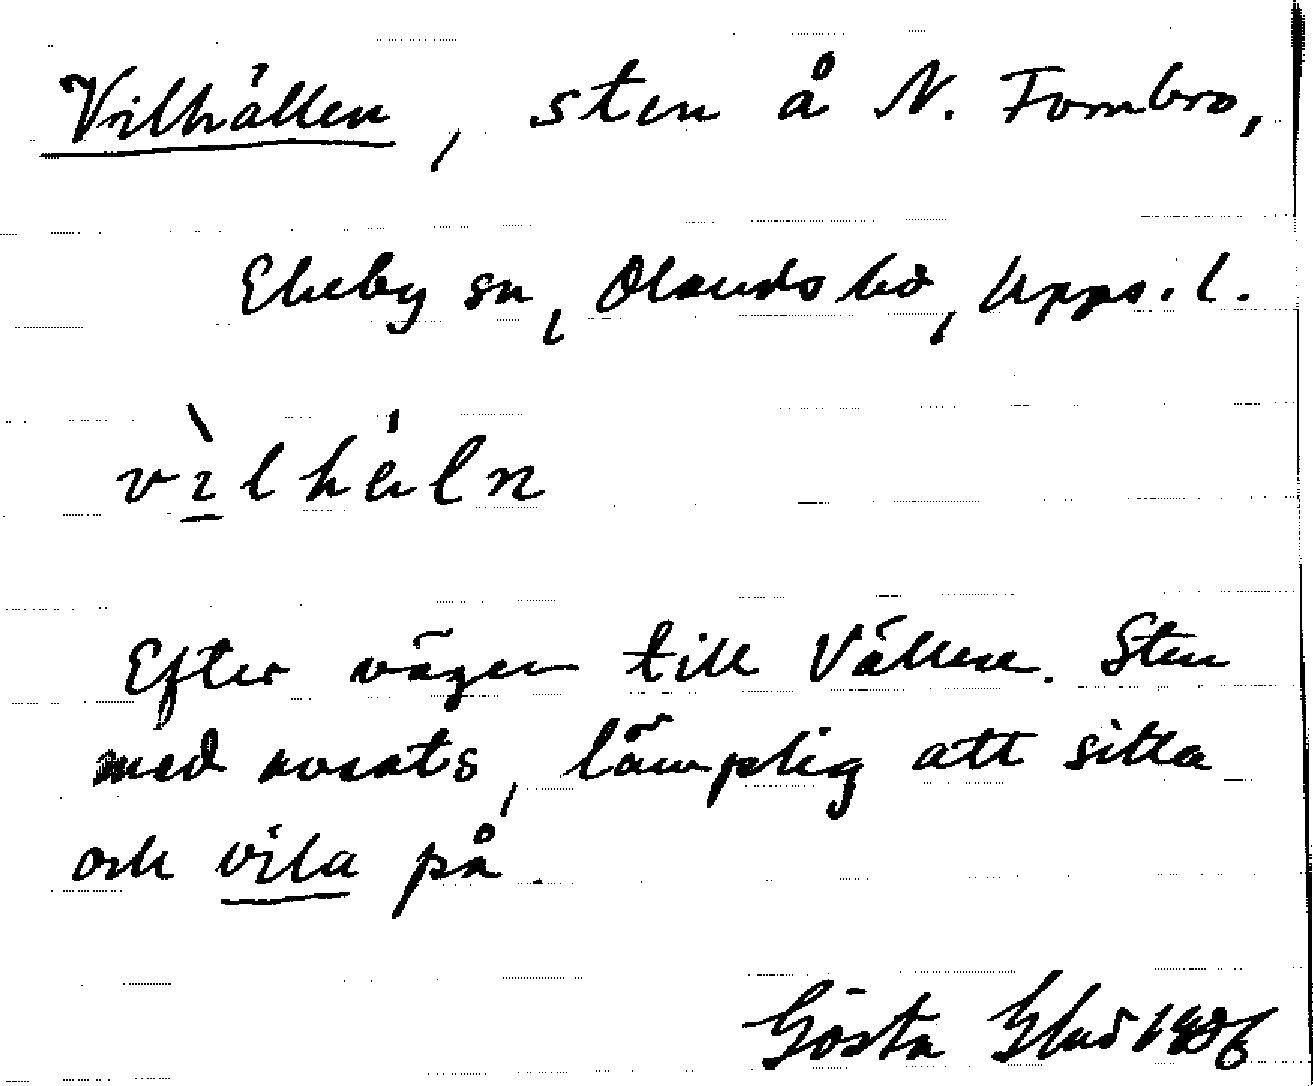 Vilhällen, sten å N. Fornbro,
Ekeby sn, Olands hd, Upps. l.
vìlhäln
Efter vägen till Vällen. Sten
med avsats, lämplig att sitta
och vila på.
Gösta